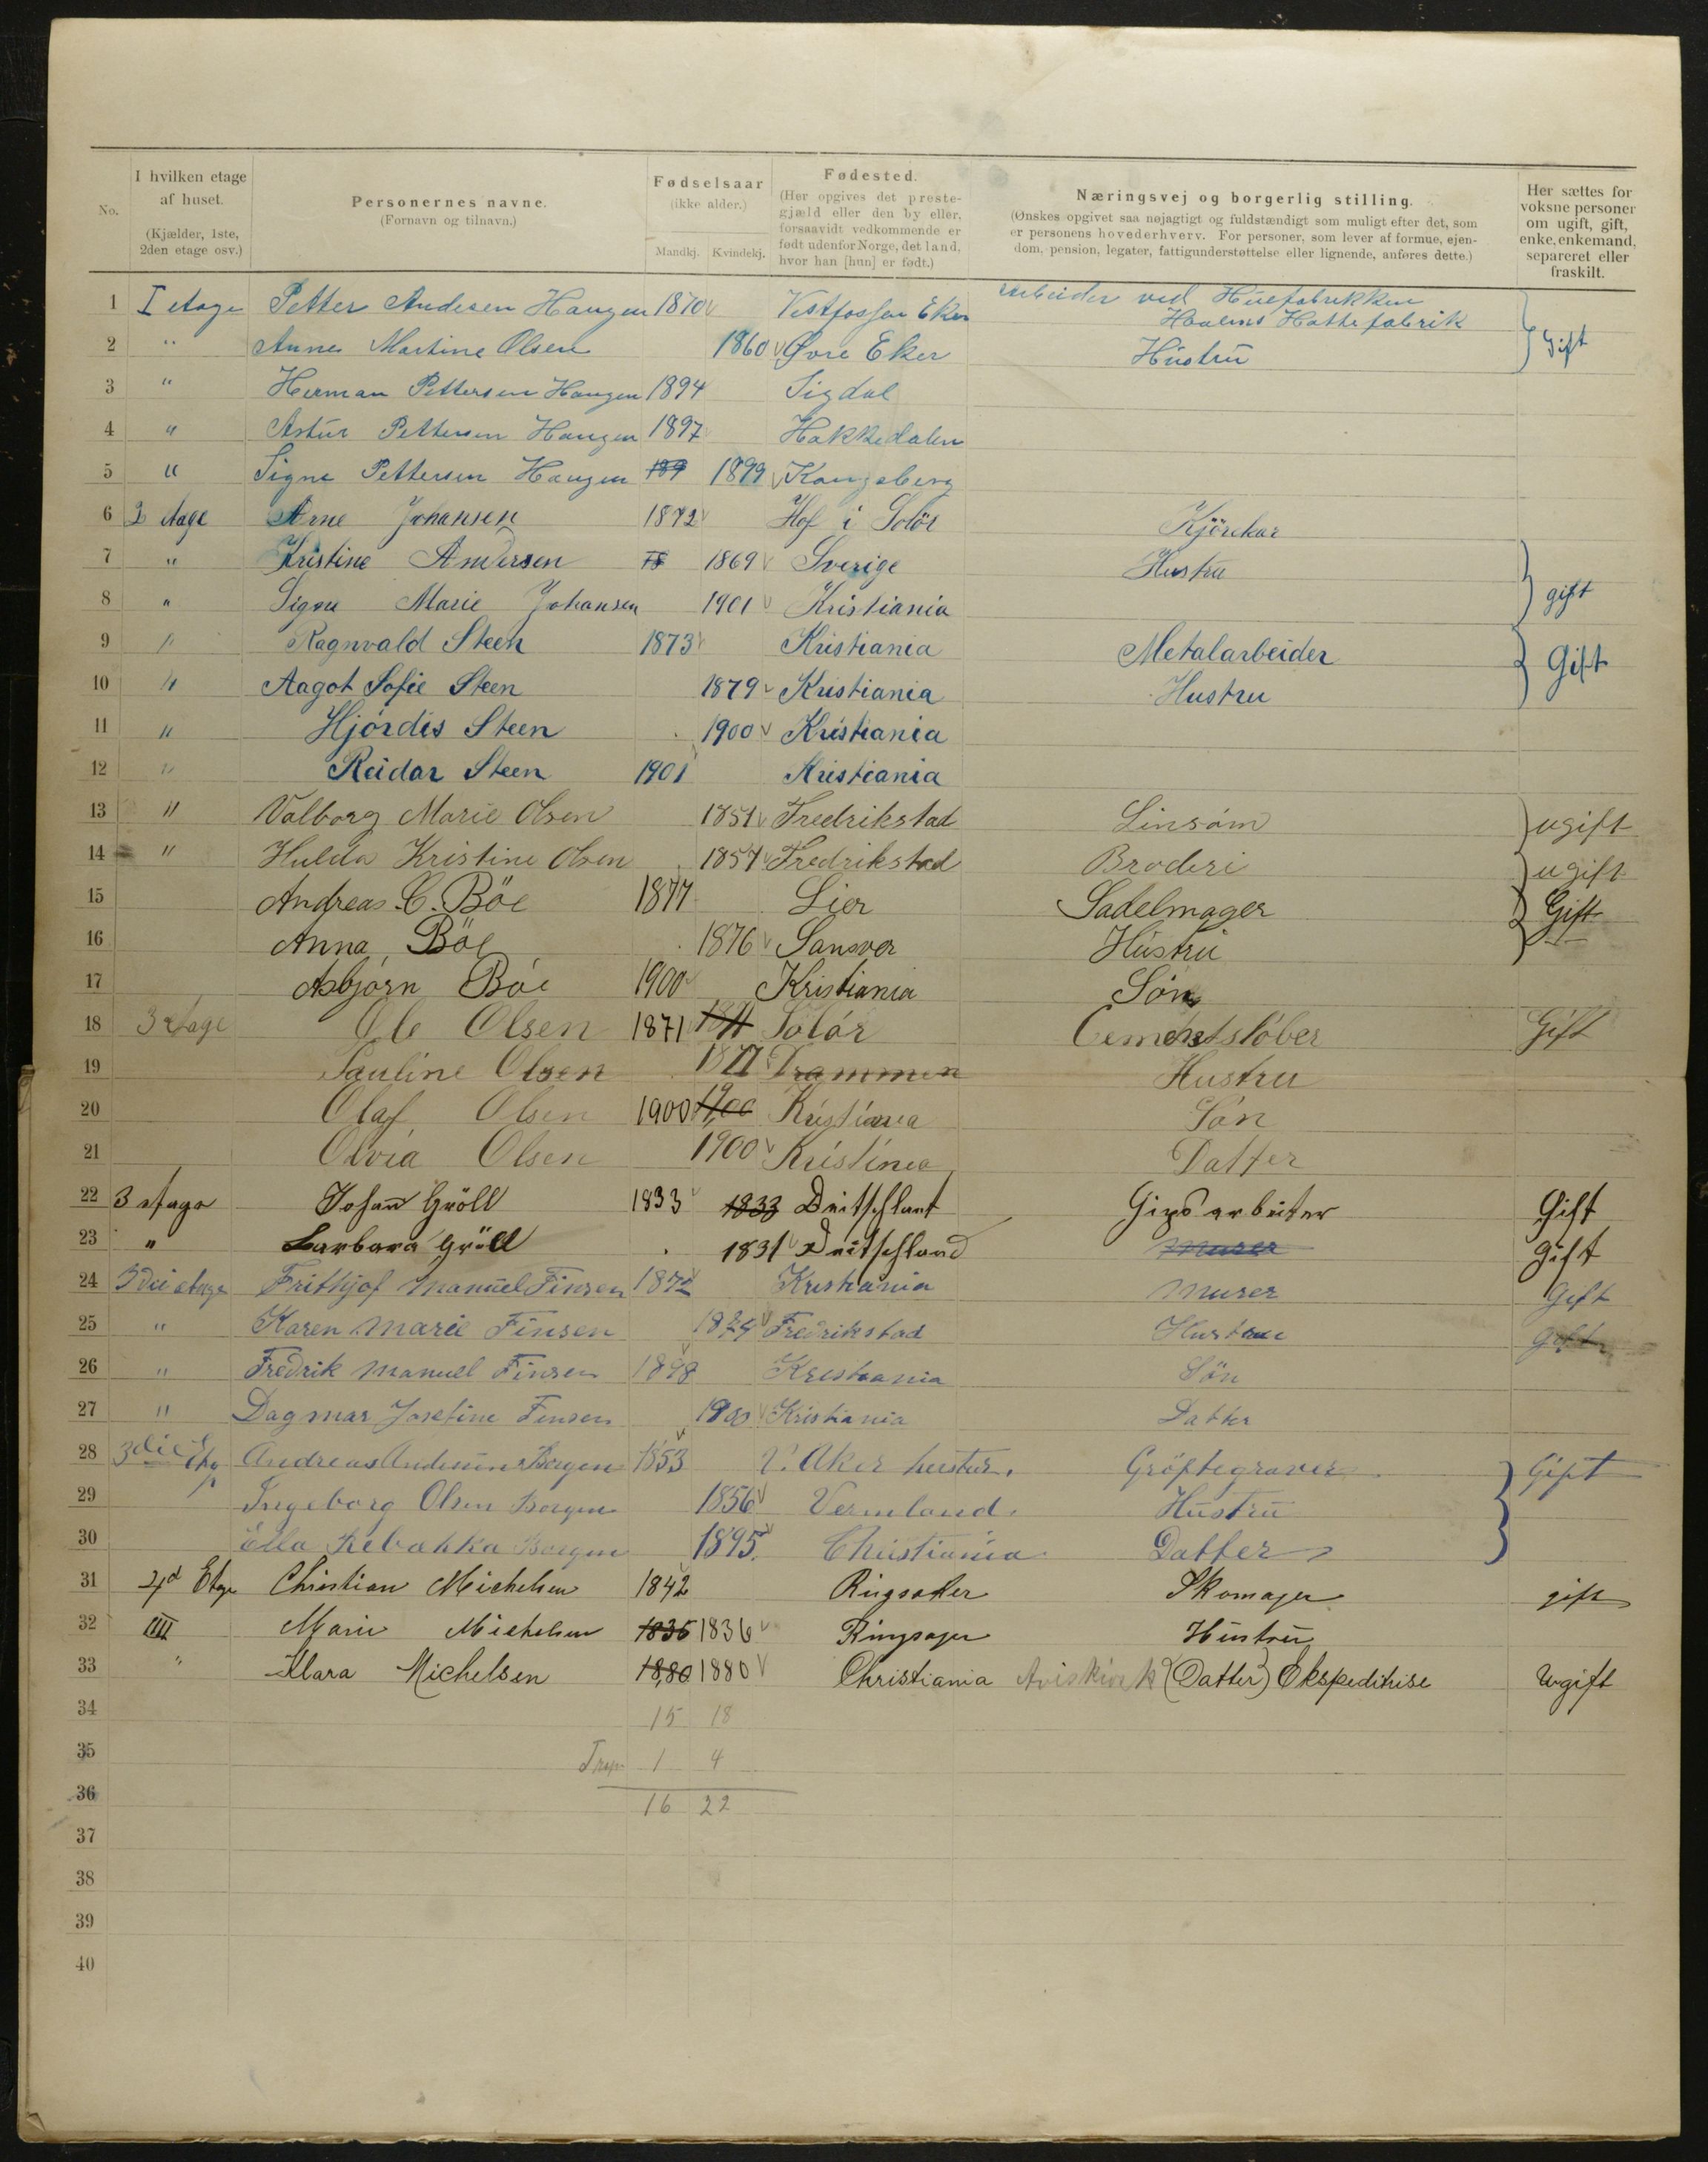 No. I hvilken etage af huset. (Kjælder, 1ste, 2den etage osv.) Personernes navne. (Fornavn og tilnavn.) Fødselsaar (ikke alder.) Mandkj. Kvindekj. Fødested. (Her opgives det prestegjæld eller den by eller, forsaavidt vedkommende er født udenfor Norge, det land, hvor han [hun] er født.) Næringsvej og borgerlig stilling. (Ønskes opgivet saa nøjagtigt og fuldstændigt som muligt efter det, som er personens hovederhverv. For personer, som lever af formue, ejendom, pension, legater, fattigunderstøttelse eller lignende, anføres dette.) Her sættes for voksne personer om ugift, gift, enke, enkemand, separeret eller fraskilt.
1 I etage Petter Andesen Haugen 1870 Vestfossen Eker arbeider ved Huefabrikken Hattefabrik
2 " Anne Martine Olsen 1860 Øvre Eker Hüstrü Gift
3 " Herman Pettersen Haugen 1894 Sigdal
4 " Artür Pettersen Haugen 1897 Hakkedalen
5 " Signe Pettersen Haugen 189 1899 Kongsberg
6 2 etage Arne Johansen 1872 Hof i Solör Kjörekar
7 " Kristine Andersen 18 1869 Sverige Hustru
8 " Signe Marie Johansen 1901 Kristiania gift
9 " Ragnvald Steen 1873 Kristiania Metalarbeider
10 " Aagot Sofie Steen 1879 Kristiania Hustru Gift
11 " Hjórdis Steen 1900 Kristiania
12 " Reidar Steen 1901 Kristiania
13 " Valborg Marie Olsen 1851 Fredrikstad Linsóm ugift
14 " Hulda Kristine Olsen 1857 Fredrikstad Broderi ugift
15 Andreas C. Böe 1877 Lier Sadelmager Gift
16 Anna Böe 1876 Sansver Hüstrü
17 Asbjórn Bóe 1900 Kristiania Sön
18 3 etage Ole Olsen 1871 1871 Solór Cementstöber Gift
19 Pauline Olsen 1877 Drammen Hustru
20 Olaf Olsen 1900 1900 Kristiania Són
21 Olvia Olsen 1900 Kristinea Datter
22 3 etage Johan Gröll 1833 1833 Deitschlant Gips arbeiter Gift
23 " Barbara Gröll 1831 Deitschland Murer Gift
24 3die etage Frithjof Manuel Finsen 1872 Kristiania Murer Gift
25 " Karen Marie Finsen 1874 Fredrikstad Hustru gift
26 " Fredrik Manuel Finsen 1898 Kristiania Sön
27 " Dagmar Josefine Finsen 1900 Kristiania Datter
28 3die Etg Andreas Andersen Borgen 1853 V. Aker Gröftegraver Gift
29 Ingeborg Olsen Borgen 1856 Vermland. Hüstrü
30 Ella Rebakka Borgen 1895. Christiania Datter
31 4d Etge Christian Michelsen 1842 Ringsaker Skomager gift
32 IIII Marie Michelsen 1836 1836 Ringsager Hüstrü
33 " Klara Michelsen 1880 1880 Christiania (Datter) Ekspeditrise Ugift
34 15 18
35 1 4
36 16 22
37
38
39
40